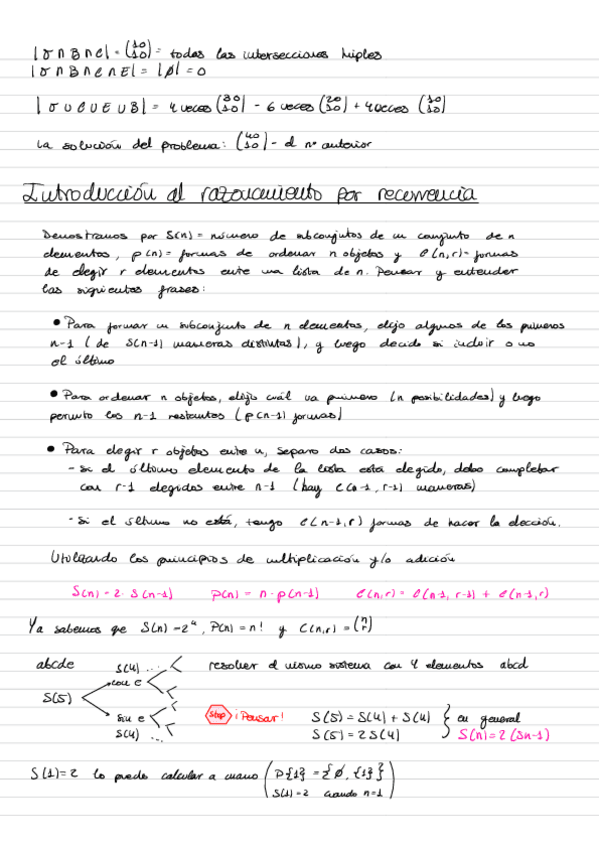 |σ∩B∩C| = (10 10) = todas las intersecciones triples
|σ∩B∩C∩E| = |∅| = 0
|σ∪C∪E∪B| = 4 veces (30 10) - 6 veces (20 10) + 4 veces (10 10)
La solución del problema: (40 10) - el nº anterior
Introducción al razonamiento por recurrencia
Denotamos por S(n) = número de subconjuntos de un conjunto de n
elementos, p(n) = formas de ordenar n objetos y C(n,r) = formas
de elegir r elementos entre una lista de n. Pensar y entender
las siguientes frases:
• Para formar un subconjunto de n elementos, elijo algunos de los primeros
n-1 (de S(n-1) maneras distintas), y luego decido si incluir o no
el último
• Para ordenar n objetos, elijo cuál va primero (n posibilidades) y luego
permuto los n-1 restantes (p(n-1) formas)
• Para elegir r objetos entre n, separo dos casos:
- Si el último elemento de la lista está elegido, debo completar
con r-1 elegidos entre n-1 (hay C(n-1, r-1) maneras)
- Si el último no está, tengo C(n-1,r) formas de hacer la elección.
Utilizando los principios de multiplicación y/o adición
S(n) = 2· S(n-1) P(n) = n · p(n-1) C(n,r) = C(n-1, r-1) + C(n-1,r)
Ya sabemos que S(n) = 2ⁿ, P(n) = n! y C(n,r) = (n r)
abcde S(4) ... resolver el mismo sistema con 4 elementos abcd
con e
S(5)
sin e Stop ¡Pensar! S(5) = S(4) + S(4) } en general
S(4) ... S(5) = 2 S(4) S(n) = 2 (Sn-1)
S(1) = 2 lo puedo calcular a mano (P{1} = {∅, {1}}
S(1) = 2 cuando n=1)